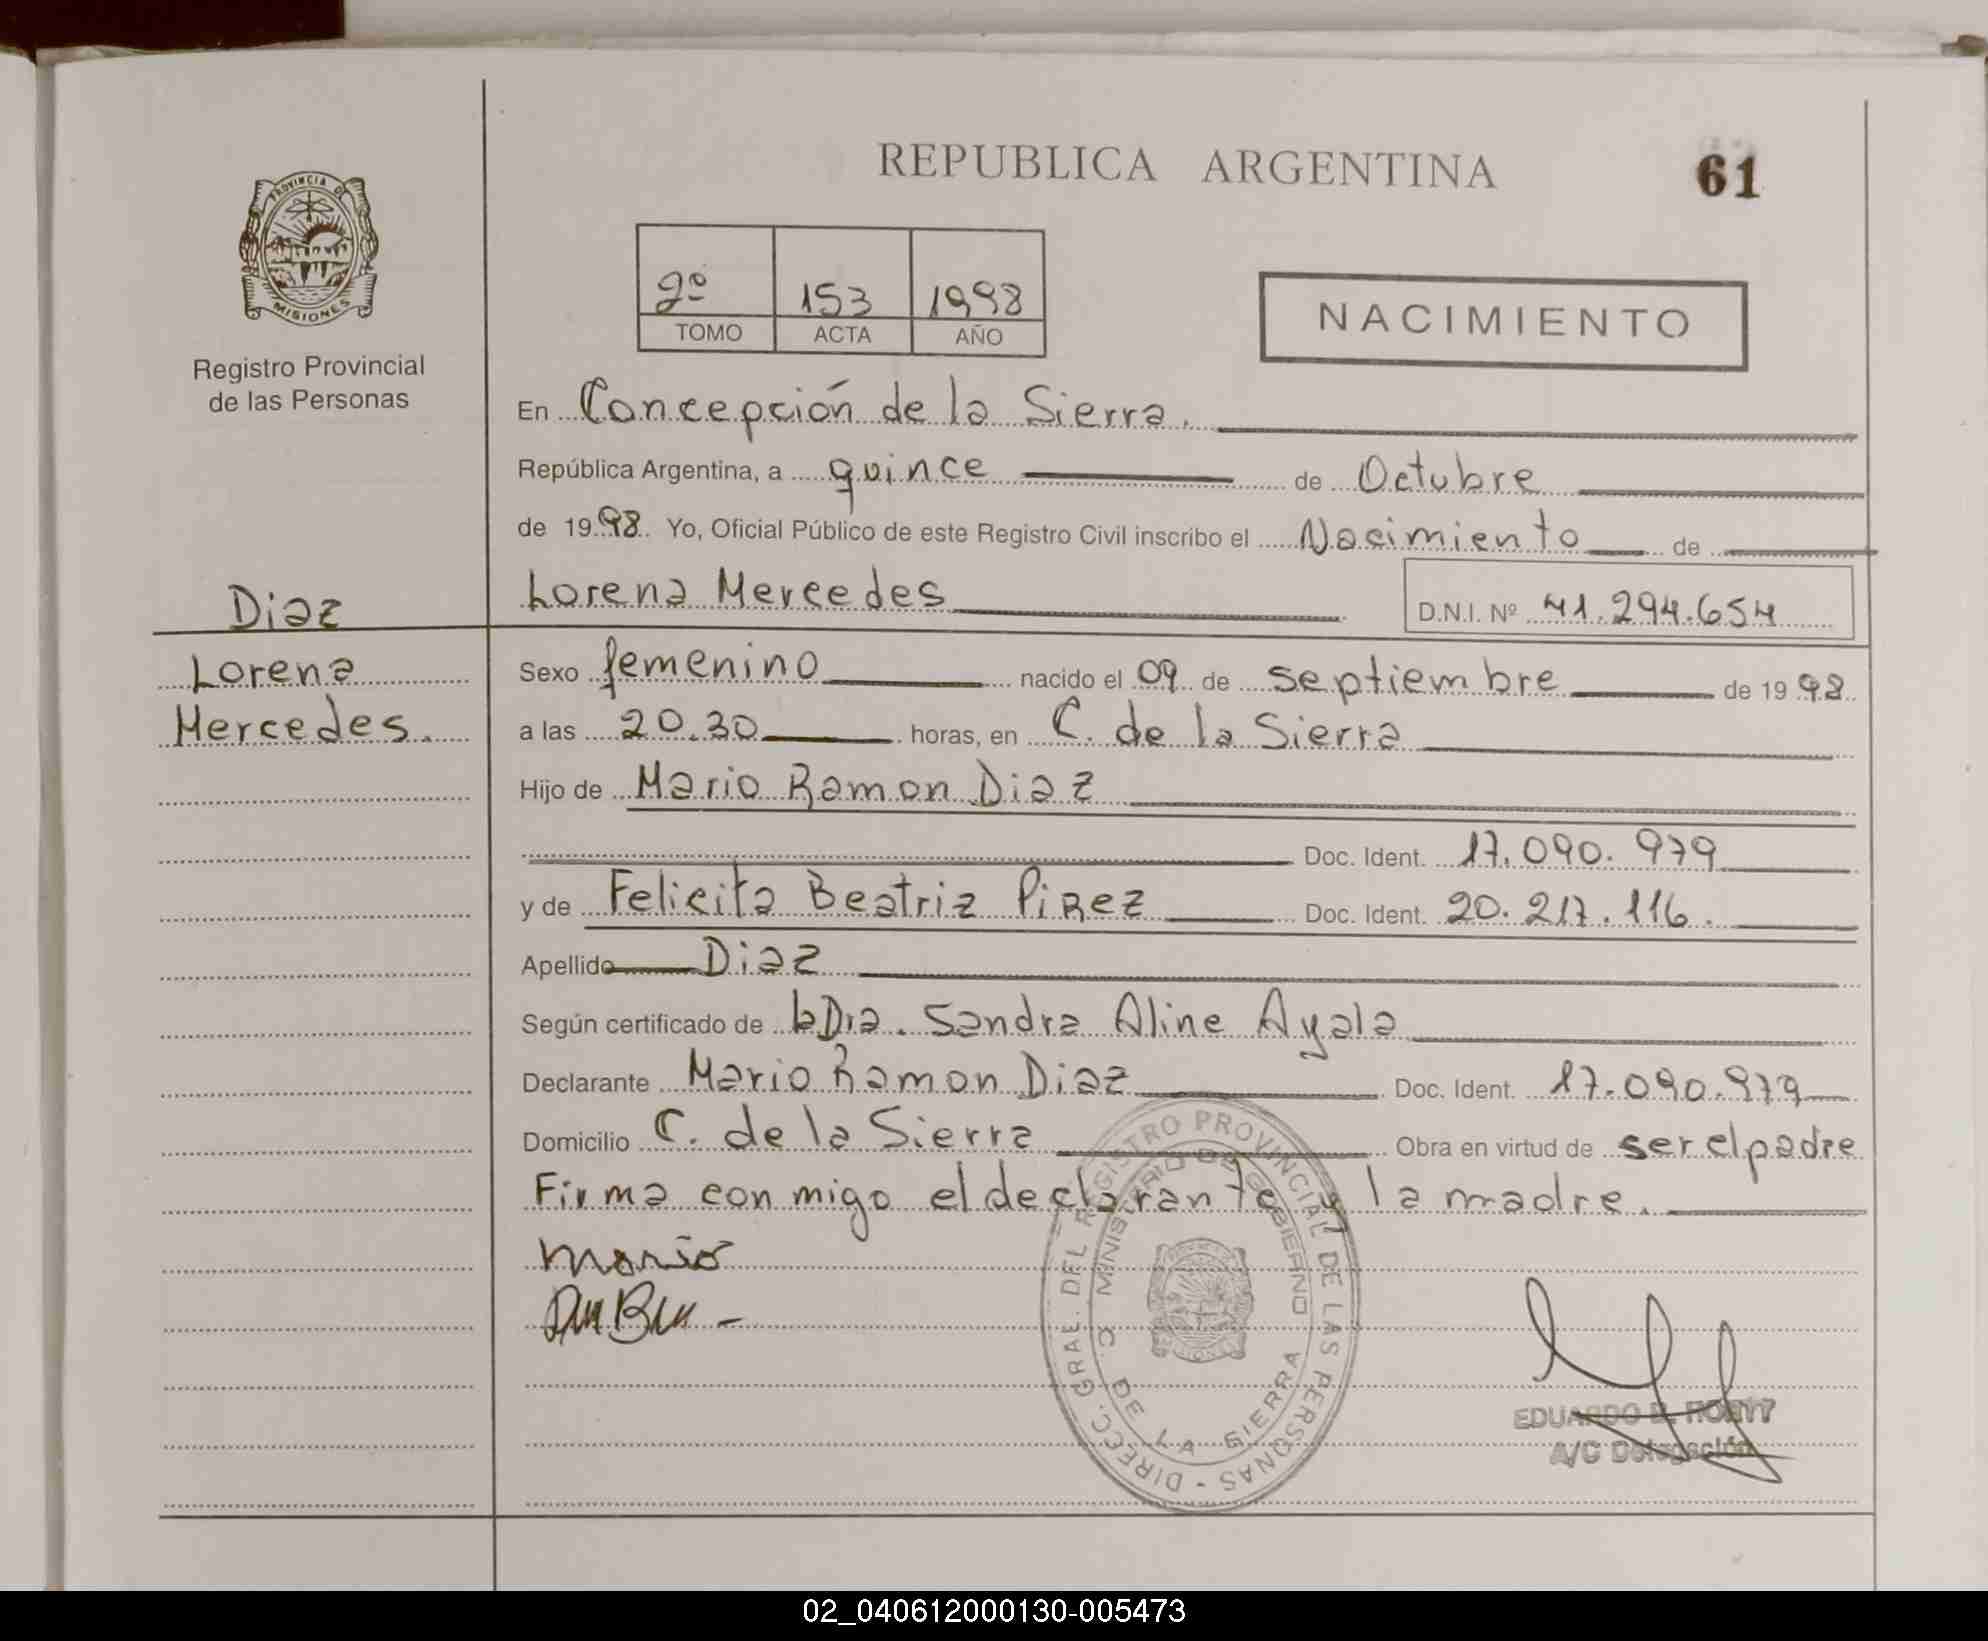 REPUBLICA ARGENTINA
61
PROVINCIA DE
MISIONES
Registro Provincial
de las Personas
2º 153 1998
TOMO ACTA AÑO
NACIMIENTO
En Concepción de la Sierra.
República Argentina, a quince de Octubre
de 1998 Yo, Oficial Público de este Registro Civil inscribo el Nacimiento de
Diaz
Lorena
Mercedes.
Lorena Mercedes D.N.I. Nº 41.294.654
Sexo femenino nacido el 09 de septiembre de 1998
a las 20.30 horas, en C. de la Sierra
Hijo de Mario Ramon Diaz
Doc. Ident. 17.090.979
y de Felicita Beatriz Pirez Doc. Ident. 20.217.116.
Apellido Diaz
Según certificado de la Dra. Sandra Aline Ayala
Declarante Mario Ramon Diaz Doc. Ident. 17.090.979
Domicilio C. de la Sierra Obra en virtud de ser el padre
Firma conmigo el declarante y la madre.
Mario
DIRECC. GRAL. DEL REGISTRO PROVINCIAL DE LAS PERSONAS -
MINISTERIO DE GOBIERNO
C. DE LA SIERRA
EDUARDO
A/C Delegación
02_040612000130-005473